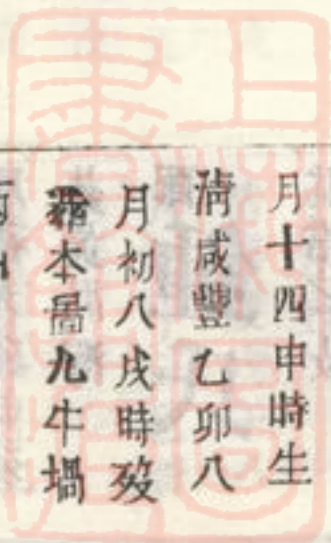 月十四申時生
清咸豐乙卯八
月初八戌時歿
葬本啚九牛塲